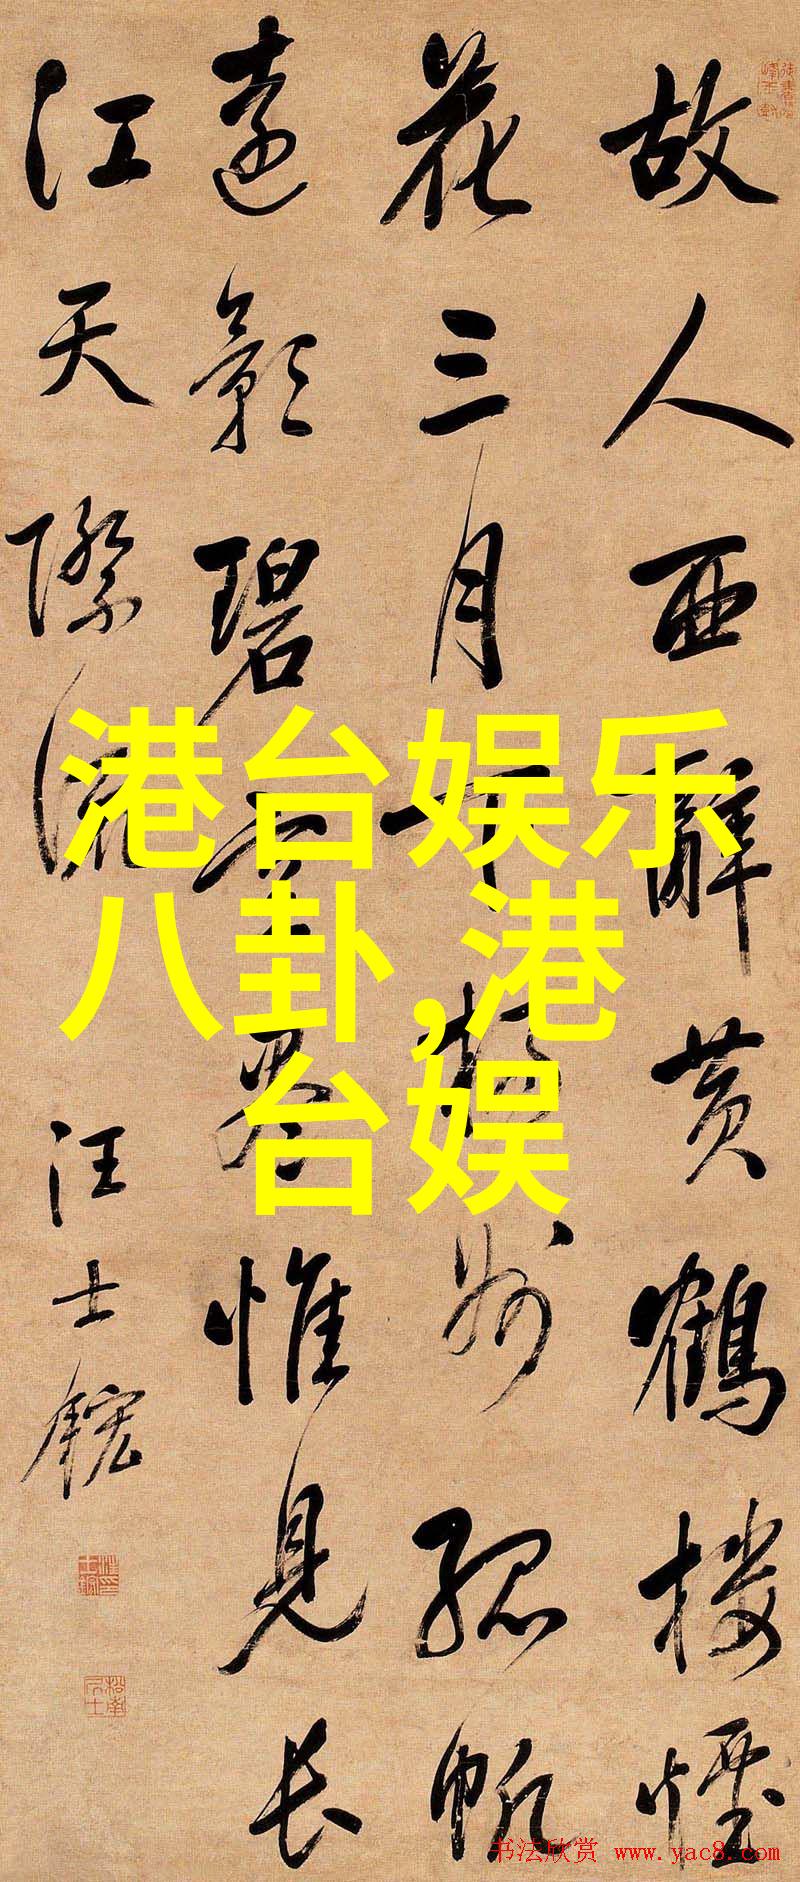 故人西辭黄鶴楼煙
花三月下揚州孤帆
遠影碧空盡惟見長
江天際流
汪士鋐
港台娱乐
八卦,港
台娱
书法欣赏 www.yac8.com